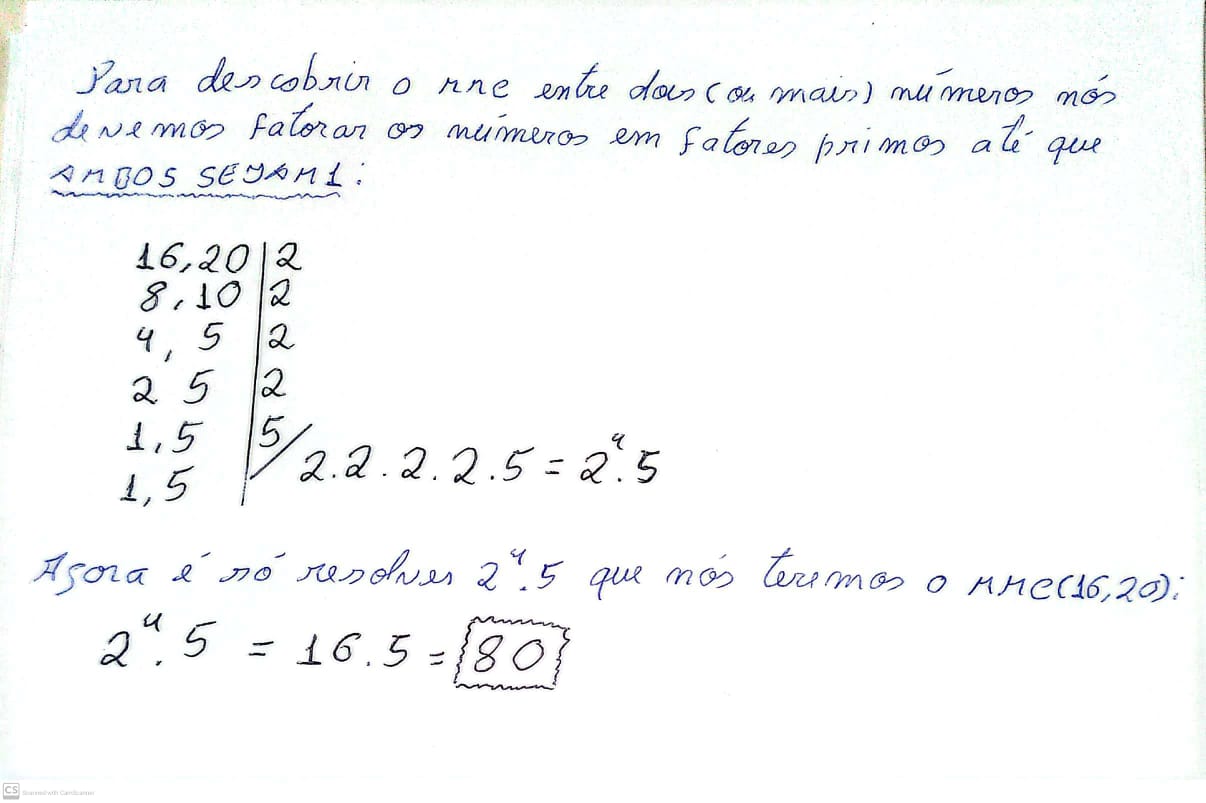 Para descobrir o MMC entre dois (ou mais) números nós
devemos fatorar os números em fatores primos até que
AMBOS SEJAM 1:
16,20|2
8,10|2
4,5|2
2 5|2
1,5|5
1,5 2.2.2.2.5=2⁴.5
Agora é só resolver 2⁴.5 que nós teremos o MMC(16,20):
2⁴.5 = 16.5=80
CS Scanned with CamScanner